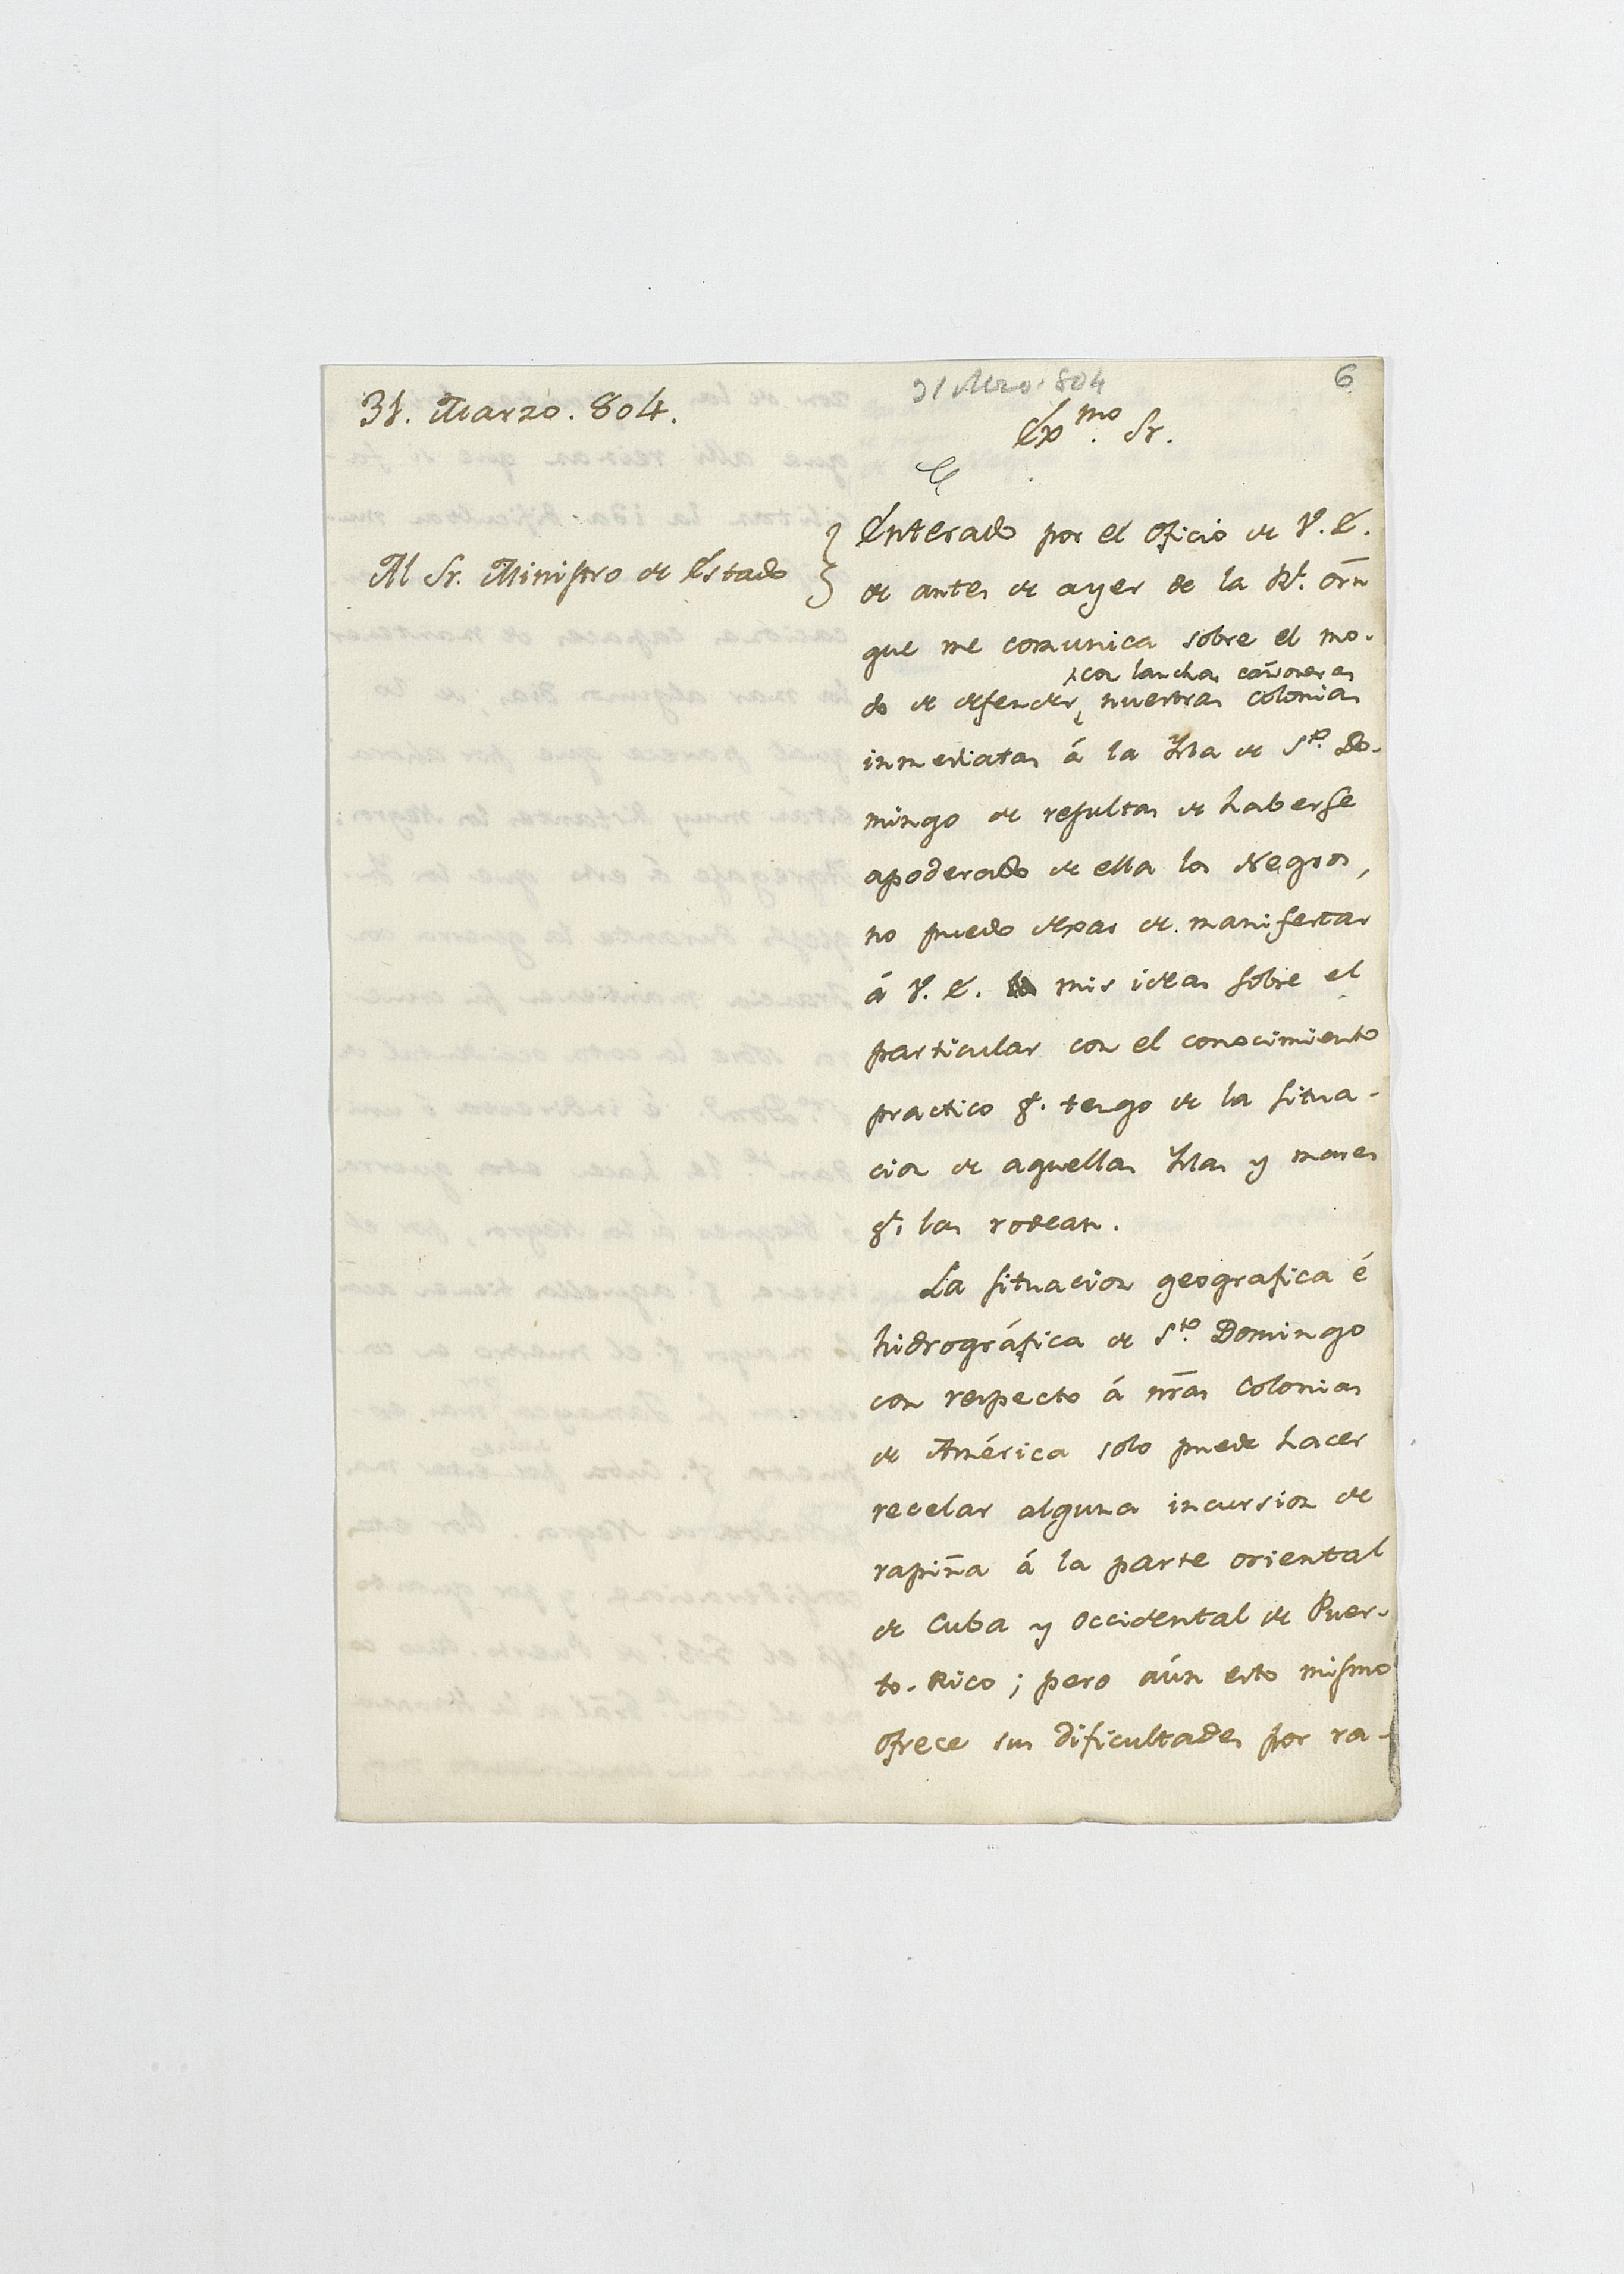 31. Marzo. 804.
31 Mzo. 804
6
Exmo. Sr.
Al Sr. Ministro de Estado
Enterado por el oficio de V. E.
de antes de ayer de la Rl. orñ
que me comunica sobre el mo-
con lanchas cañoneras
do de defender, nuestras colonias
inmediatas á la Isla de Sto. Do-
mingo de resultas de haberse
apoderado de ella los Negros,
no puedo dexar de manifestar
á V. E. mis ideas sobre el
particular con el conocimiento
practico q. tengo de la situa-
cion de aquellas Islas y mares
q. las rodean.
La situacion geografica é
hidrográfica de Sto. Domingo
con respecto á nr̃as Colonias
de América solo puede hacer
recelar alguna incursion de
rapiña á la parte oriental
de Cuba y occidental de Puer-
to-Rico; pero aún esto mismo
ofrece sus dificultades por ra-